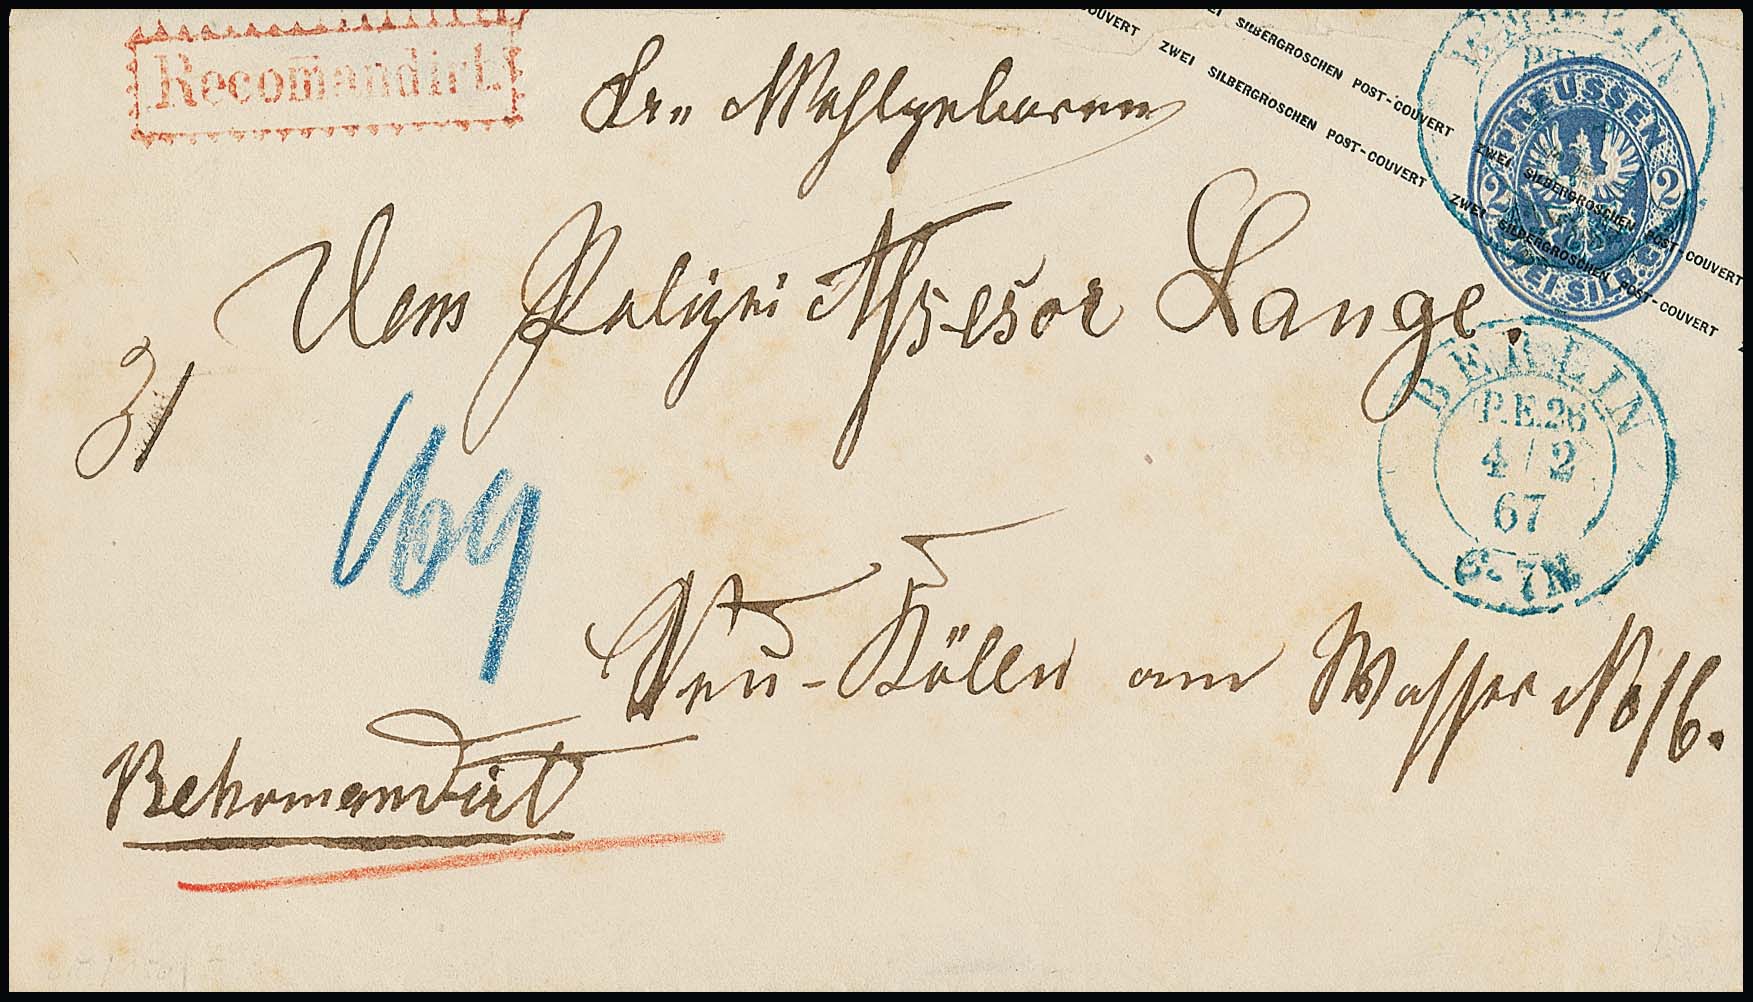 Recomandirt.
Sr. Wohlgeboren
Dem Polizei Assessor Lange.
31
109
Neu-Kölln am Wasser No 16.
Rekomandirt
ZWEI SILBERGROSCHEN POST-COUVERT
ZWEI SILBERGROSCHEN POST-COUVERT
ZWEI SILBERGROSCHEN POST-COUVERT
ZWEI SILBERGROSCHEN POST-COUVERT
BERLIN
PREUSSEN
2 2
ZWEI SILB.GR.
BERLIN
P.E.26
4/2
67
6-7N